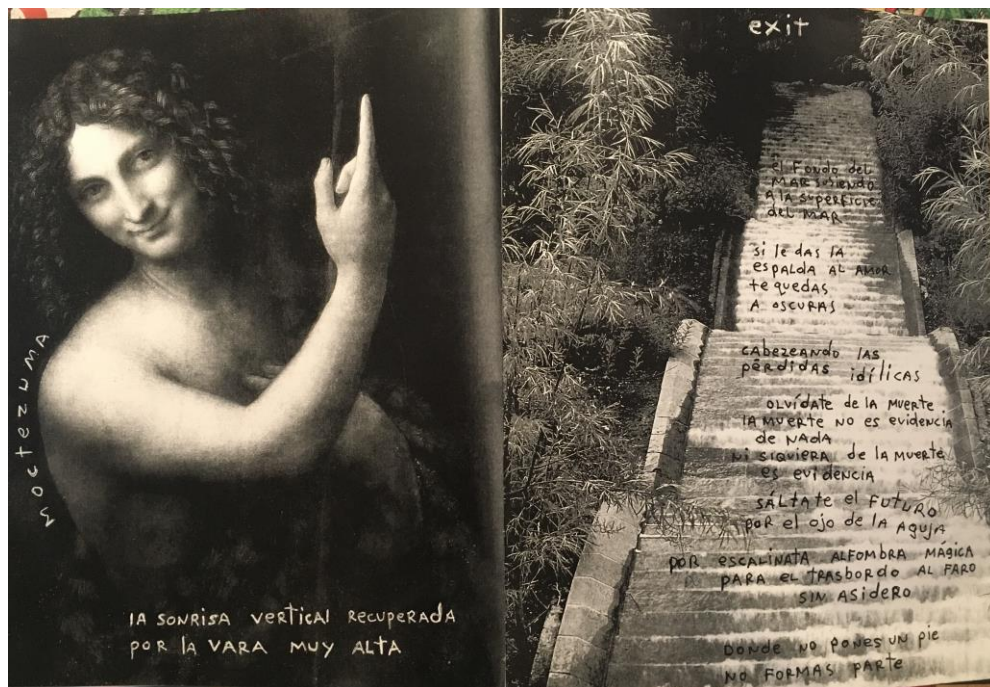 MOCTEZUMA
LA SONRISA VERTICAL RECUPERADA
POR LA VARA MUY ALTA
exit
el FONDO del
MAR SUBIENDO
A LA SUPERFICIE
del MAR
si le das la
ESPALDA AL AMOR
te quedas
A OSCURAS
CABEZEANDO LAS
PÉRDIDAS IDÍLICAS
OLVÍDATE DE LA MUERTE
LA MUERTE NO ES EVIDENCIA
DE NADA
NI SIQUIERA DE LA MUERTE
ES EVIDENCIA
SÁLTATE EL FUTURO
POR EL OJO DE LA AGUJA
POR ESCALINATA ALFOMBRA MÁGICA
PARA EL TRASBORDO AL FARO
SIN ASIDERO
DONDE NO PONES UN PIE
NO FORMAS PARTE